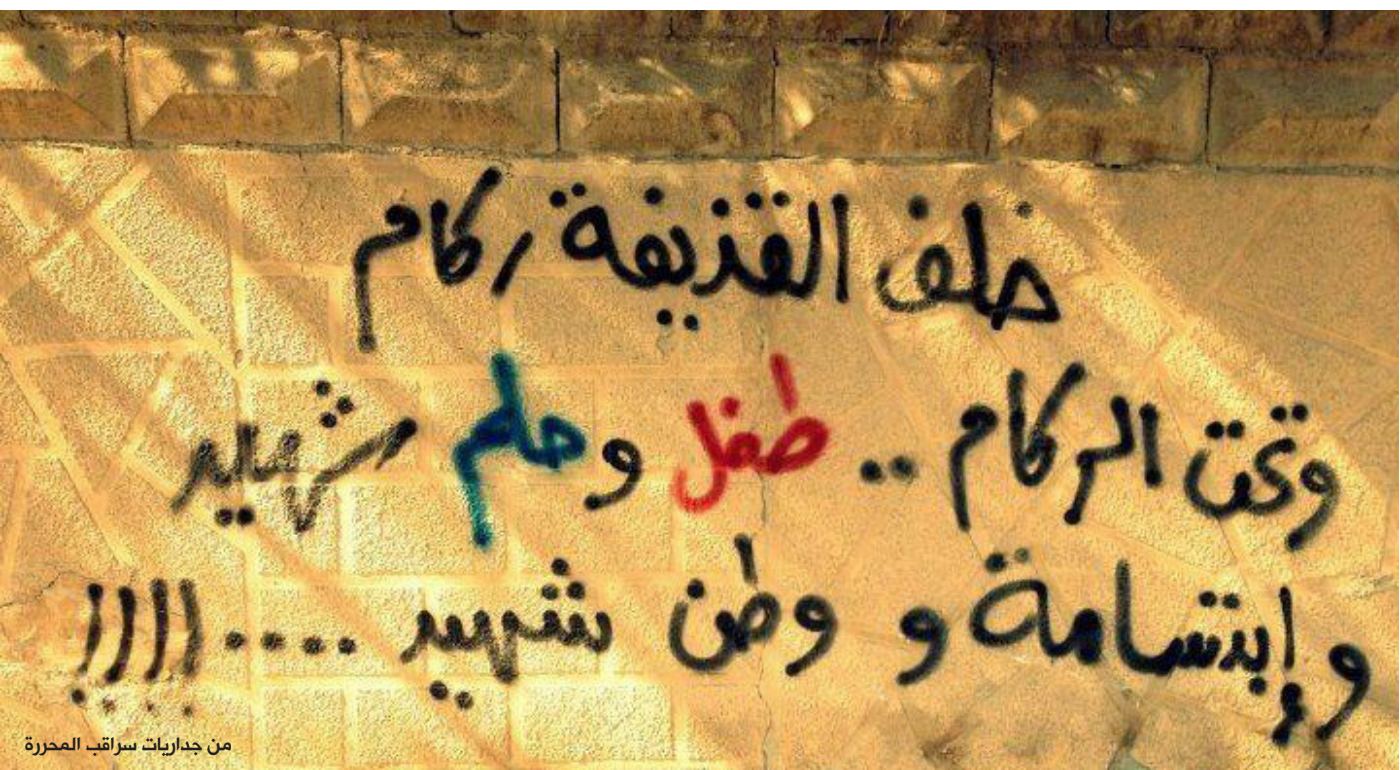 خلف القذيفة ركام
وتحت الركام .. طفل وحلم شهيد
وإبتسامة و وطن شهيد ....!!!!
من جداريات سراقب المحررة